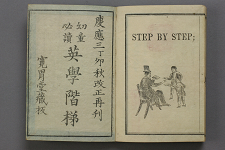 慶應三丁卯秋改正再刋
幼童
必讀
英學階梯
寬胃堂藏板
STEP BY STEP;